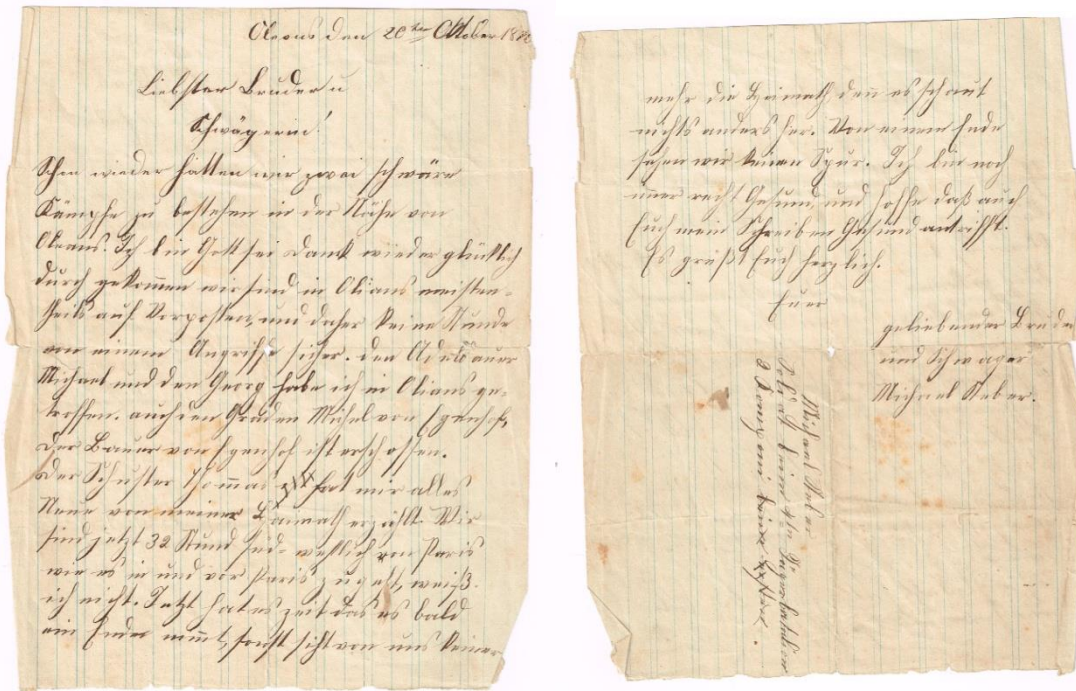 Oleons den 20ten Oktober 18
Liebster Bruder u
Schwägerin!
Schon wieder hatten wir zwei schwäre
Kämpfe zu bestehen in der Nähe von
Oleans. Ich bin Gott sei Dank wieder glücklich
durch gekommen wir sind in Olians meisten-
theils auf Vorposten, und daher keine Stunde
von einem Angriffe sicher. den
Michael und den Georg habe ich in Olians ge-
troffen. auch den Graden Michel von Egenhof,
der Bauer von Egenhof ist erschossen.
der Schuster Thommas hat mir alles
Neue von meiner Haimath erzählt. Wir
sind jetzt 32 Stund süd-westlich von Paris
wie es in und vor Paris zugeht, weiß
ich nicht. Jetzt hat es zeit das es bald
ein Ende nimt, sonst siht von uns keiner
mehr die Haimath den es schaut
nichts anders her. Von einem Ende
sehen wir keinen Spur. Ich bin noch
imer recht Gesund, und hoffe daß auch
Euch mein Schreiben Gesund antrifft.
Es grüßt Euch herzlich.
Euer
geliebender Bruder
und Schwager
Michael Huber.
Michael Huber
Soldat beim